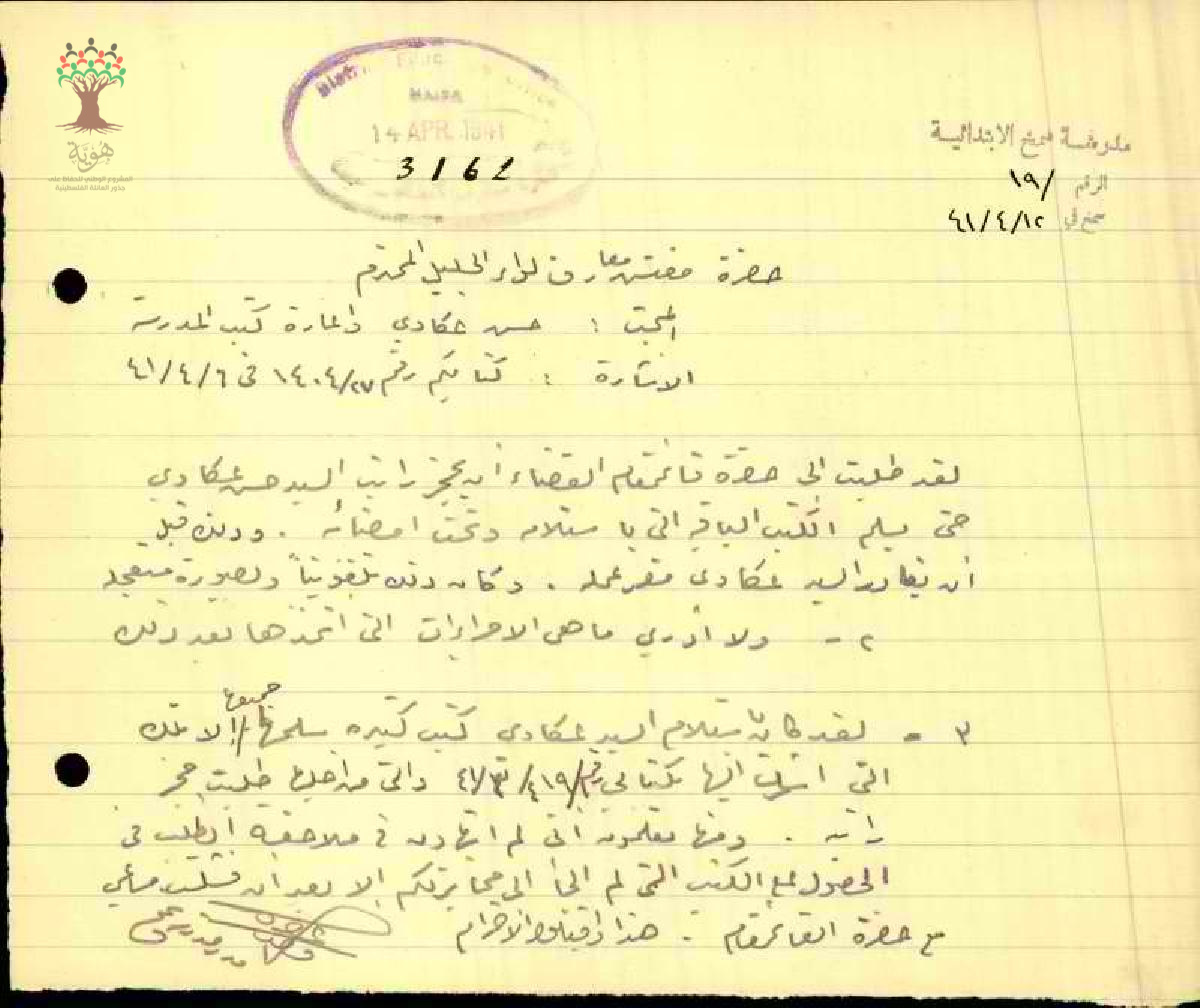 هوية
المشروع الوطني للحفاظ على
جذور العائلة الفلسطينية
HAIFA
14 APR 1941
3162
مدرسة سمخ الابتدائية
الرقم /١٩
سمخ في ٤١/٤/١٢
حضرة مفتش معارف لواء الجليل المحترم
المبحث : حسن عكاوي واعارة كتب المدرسة
الاشارة : كتابكم رقم ١٤٠٤/٢٧ في ٤١/٤/٦
لقد طلبت الى حضرة قائمقام القضاء أن يحجز راتب السيد حسن عكاوي
حتى يسلم الكتب الباقية التي باستلامه وتحت امضائه . وذلك قبل
أن يغادر السيد عكاوي مقر عمله . وكان ذلك تلفونياً وبصورة مستعجلة
٢ - ولا أدري ما هي الاجراءات التي اتخذها بعد ذلك
٣ - لقد كان باستلام السيد عكاوي كتب كثيره سلمها جميعها إلا تلك
التي اشرت اليها بكتابي رقم والتي من اجلها طلبت حجز
راتبه . ومنها تعلمون أني لم اتهاون في ملاحقة الطلب في
الحصول على الكتب التي لم الجأ الى مخابرتكم إلا بعد أن فشلت مساعي
مع حضرة القائمقام . هذا واقبلوا الاحترام